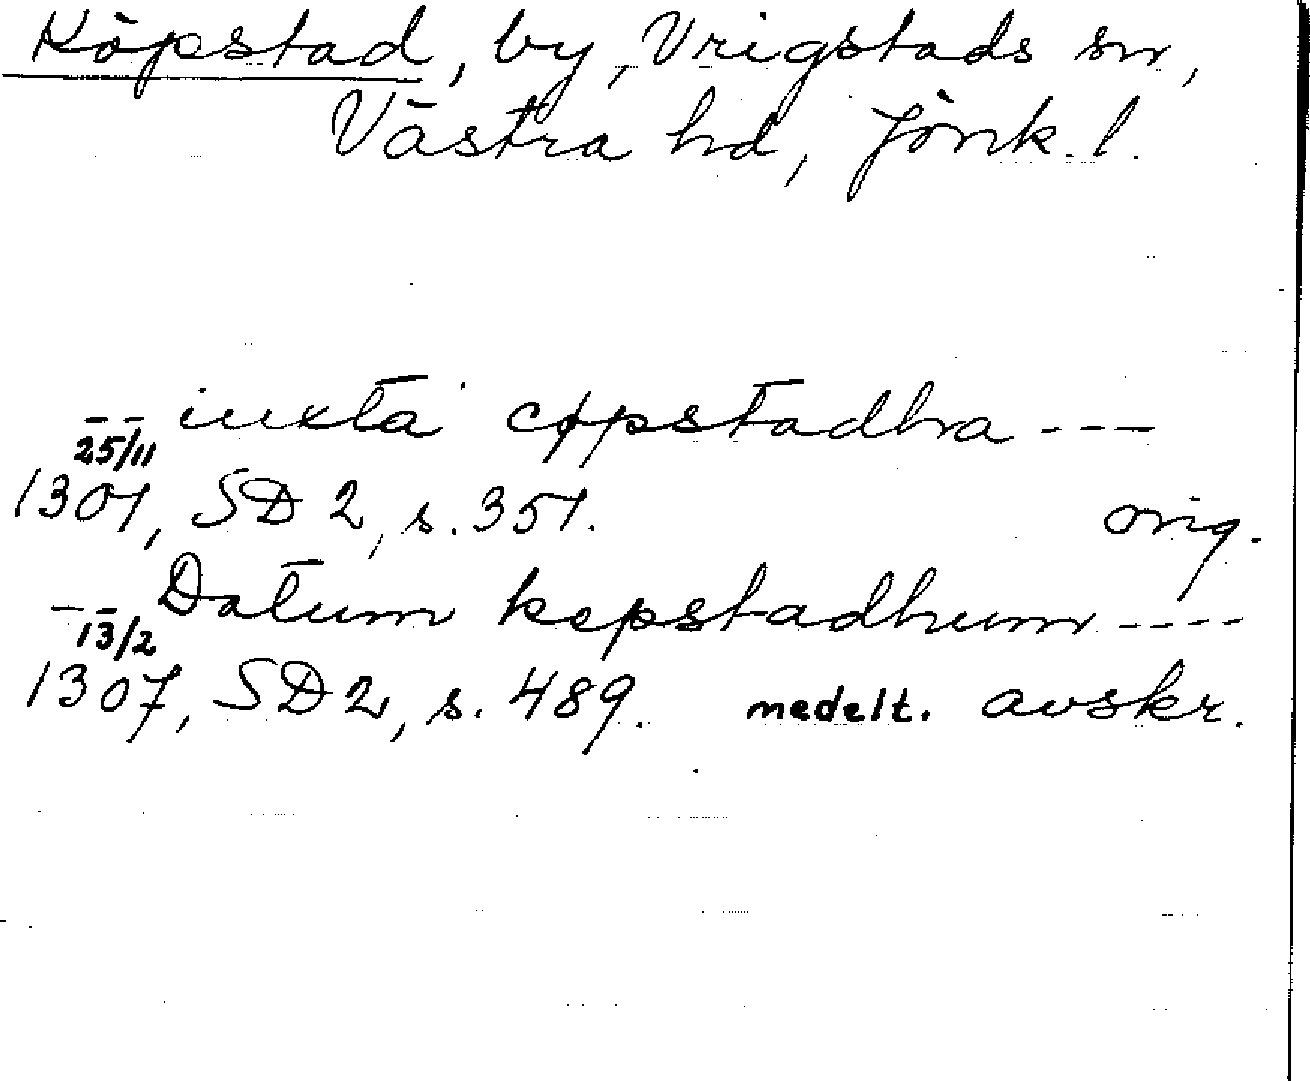 Köpstad, by, Vrigstads sn,
Västra hd, Jönk. l.
-- iuxta cøpstadhra ---
25/11
1301, SD 2, s. 351. orig.
-- Datum kepstadhum ----
13/2
1307, SD 2, s. 489. medelt. avskr.